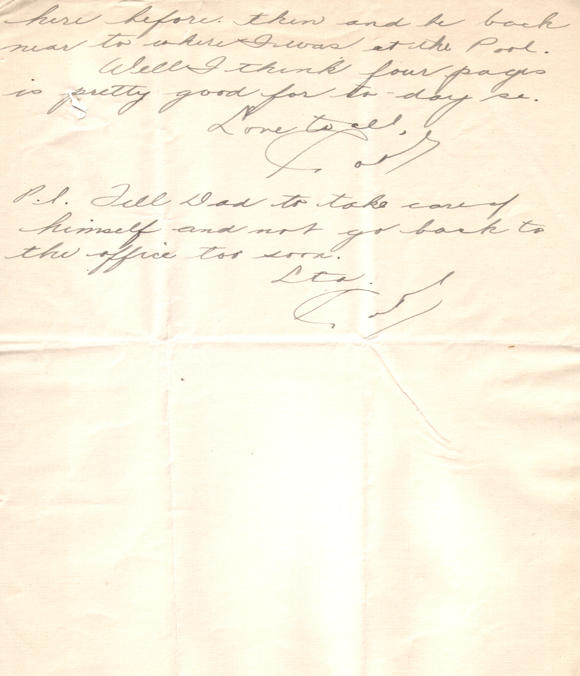 here before then and be back
near to where I was at the Pool.
Well I think four pages
is pretty good for to-day so.
Love to all,
P.S. Tell Dad to take care of
himself and not go back to
the office too soon.
Lta.